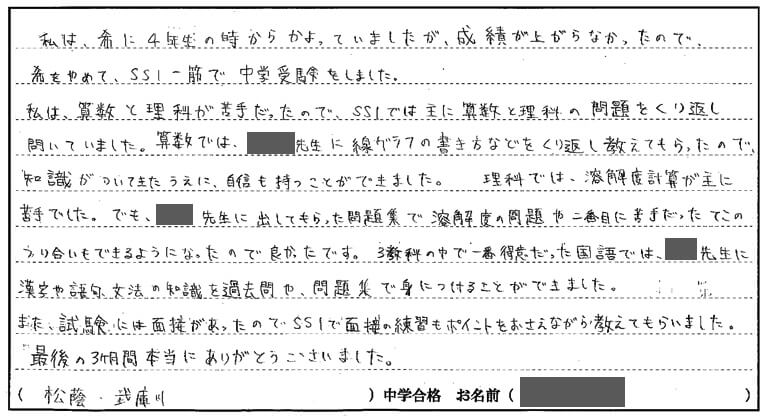 私は、希に4年生の時からかよっていましたが、成績が上がらなかったので、
希をやめて、SS1一筋で中学受験をしました。
私は、算数と理科が苦手だったので、SS1では主に算数と理科の問題をくり返し
聞いていました。算数では、先生に線グラフの書き方などをくり返し教えてもらったので、
知識がついてきたうえに、自信も持つことができました。 理科では、溶解度計算が主に
苦手でした。でも、先生に出してもらった問題集で溶解度の問題や二番目に苦手だったてこの
つり合いもできるようになったので良かったです。3教科の中で一番得意だった国語では、先生に
漢字や語句、文法の知識を過去問や、問題集で身につけることができました。
また、試験には面接があったのでSS1で面接の練習もポイントをおさえながら教えてもらいました。
最後の3ケ月間本当にありがとうございました。
( 松蔭・武庫川 ) 中学合格 お名前 ( )